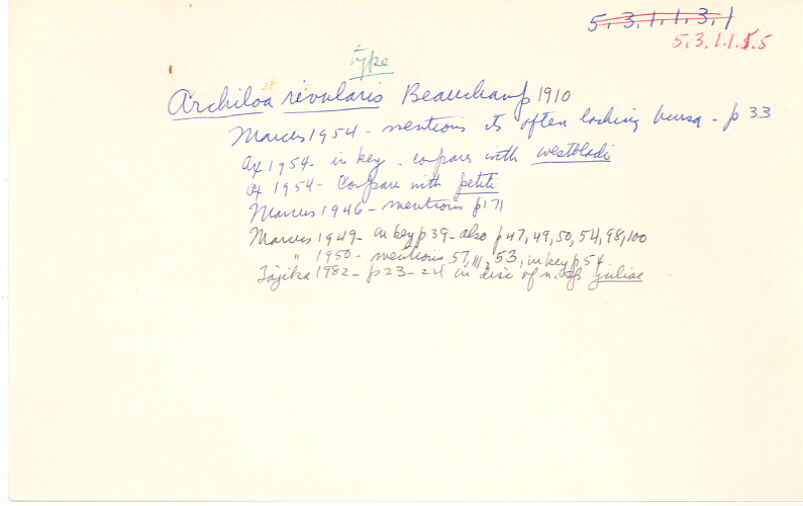 5.3.1.1.3.1
5.3.1.1.5.5
type
Archiloa rivularis Beauchamp 1910
Marcus 1954 - mentions its often lacking bursa - p 33
Ax 1954 - in key - compares with westbladi
Ax 1954 - Compare with petiti
Marcus 1946 - mentions p171
Marcus 1949 - in key p39 - also p47, 49, 50, 54, 98, 100
" 1950 - mentions 57, 111, 53, in key p54
Tajika 1982 - p23-24 in disc of n. sp juliae